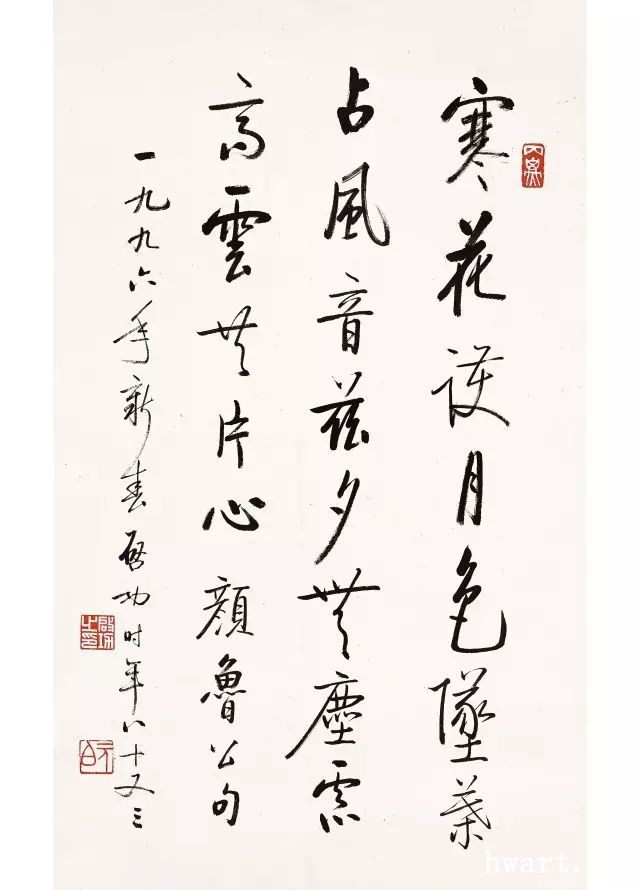 寒花護月色墜葉
占風音茲夕無塵慮
高雲共片心顏魯公句
一九九六年新春啓功时年八十又三
啓功之印
元白
hwart.